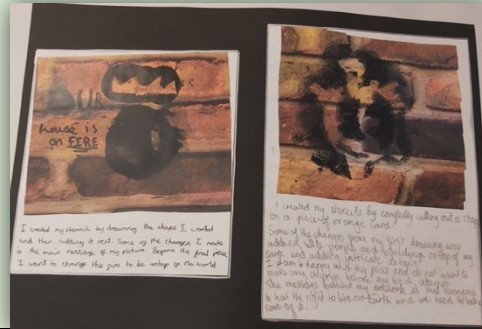 OUR
house is
on FIRE
I created my stencils by drawing the shape I wanted
and then cutting it out. Some of the changes I made
is the main message of my picture. Before the final piece
I want to change the fire to be ontop of the world.
I created my stencils by carefully cutting out a shape
on a piece of orange card.
Some of the changes from my first drawing was
adding little people and buildings ontop of my
Earth and adding intricate details.
I am happy with my piece and do not want to
make any change before my final attempt.
The message behind my artwork is that everyone
to has the right to live on Earth and we need to take
care of it.